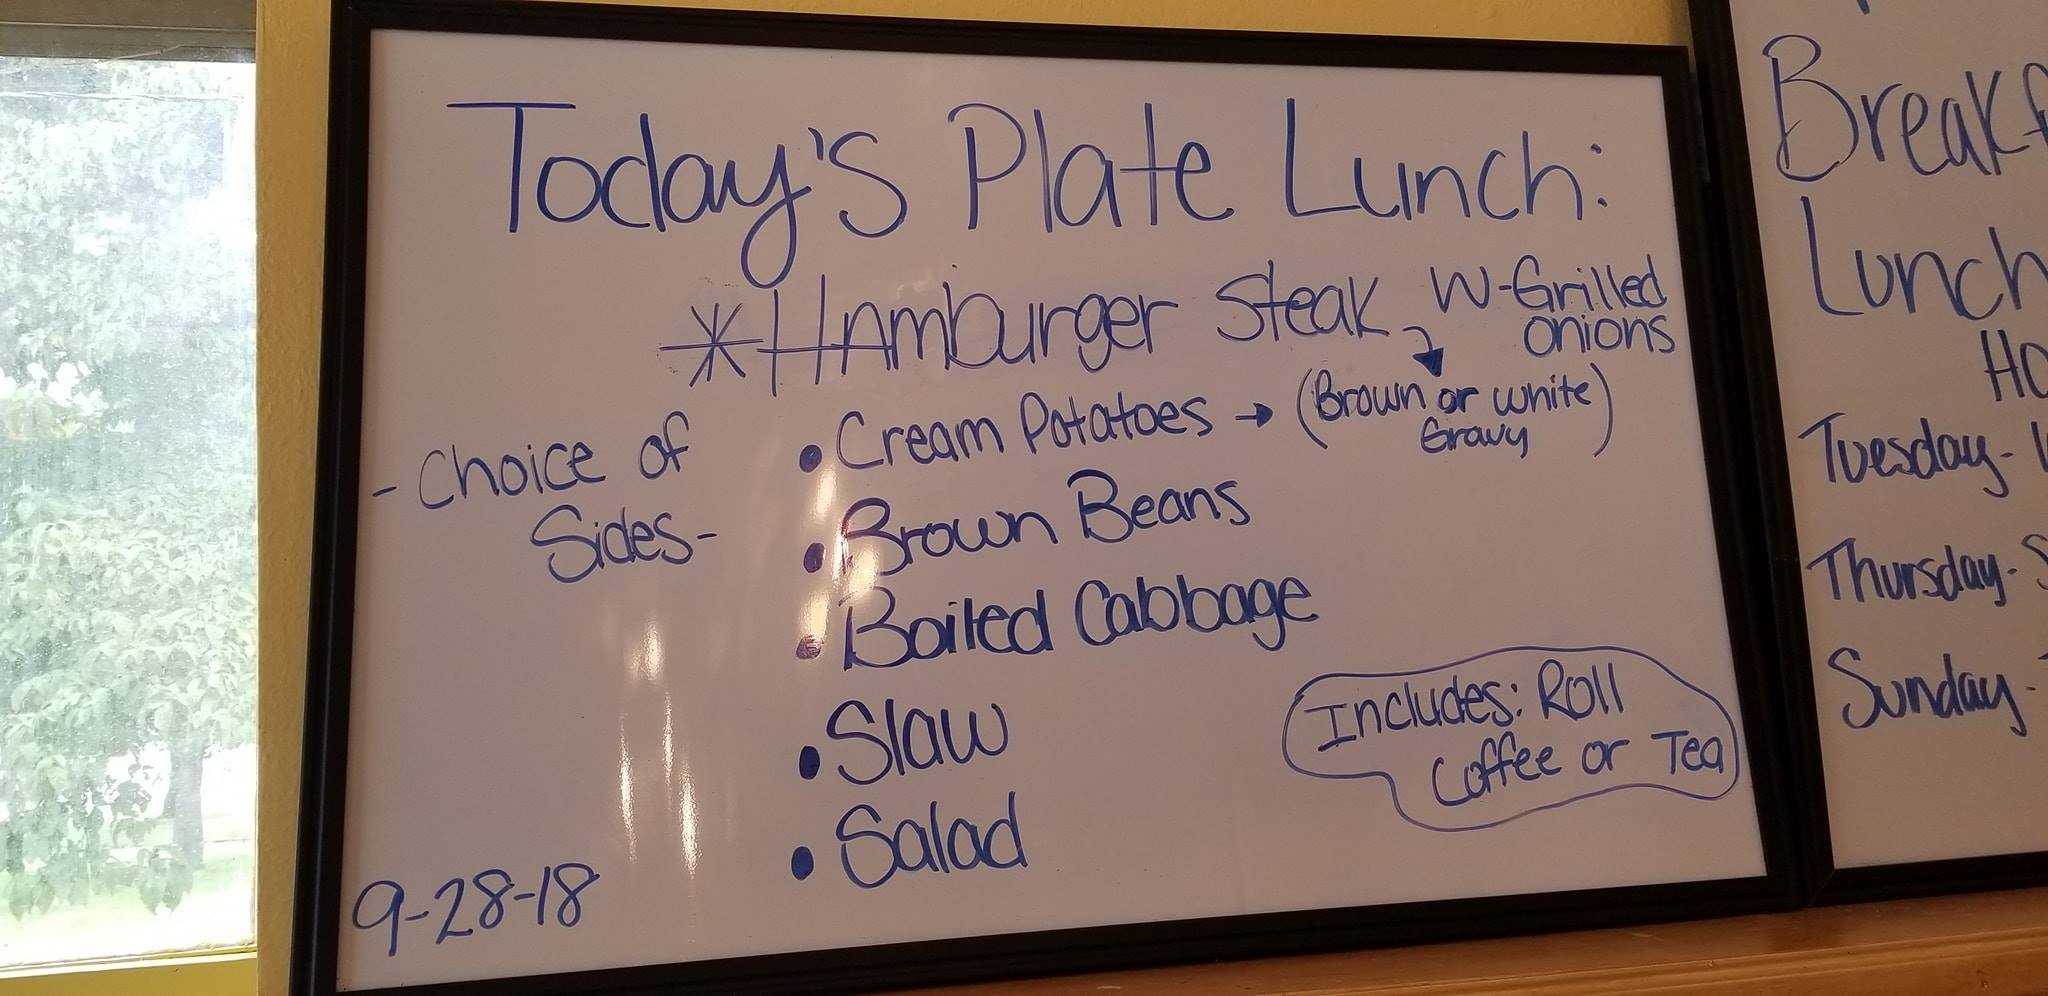 Today's Plate Lunch:
*Hamburger Steak W-Grilled
onions
- Choice of
Sides-
• Cream Potatoes → (Brown or white)
Gravy
• Brown Beans
• Boiled Cabbage
• Slaw
• Salad
Includes: Roll
Coffee or Tea
9-28-18
Lunch
Tuesday-
Thursday-
Sunday-